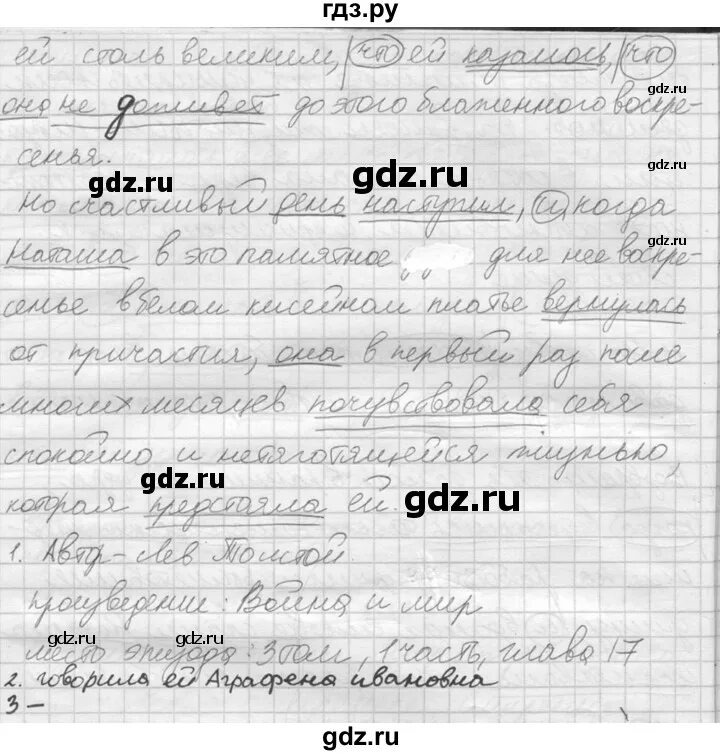 гдз.ру
ей столь великим, что ей казалось, что
она не доживет до этого блаженного воскре-
сенья.
gdz.ru gdz.ru gdz.ru
Но счастливый день наступил, и когда
gdz.ru
Наташа в это памятное для нее воскре-
сенье в белом кисейном платье вернулась
gdz.ru gdz.ru
от причастия, она в первый раз после
многих месяцев почувствовала себя
gdz.ru
спокойно и не тяготящейся жизнью,
gdz.ru gdz.ru
которая предстояла ей.
1. Автор - Лев Толстой.
gdz.ru
произведение: Война и мир
gdz.ru gdz.ru
место эпизода: 3 том, 1 часть, глава 17
2. говорила ей Аграфена ивановна
3 -
gdz.ru